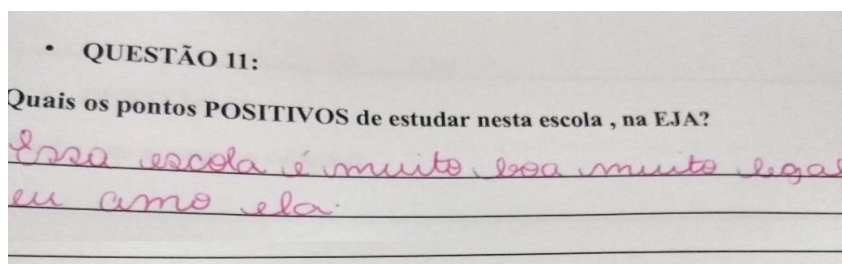 • QUESTÃO 11:
Quais os pontos POSITIVOS de estudar nesta escola , na EJA?
Essa escola é muito boa muito legal
eu amo ela.